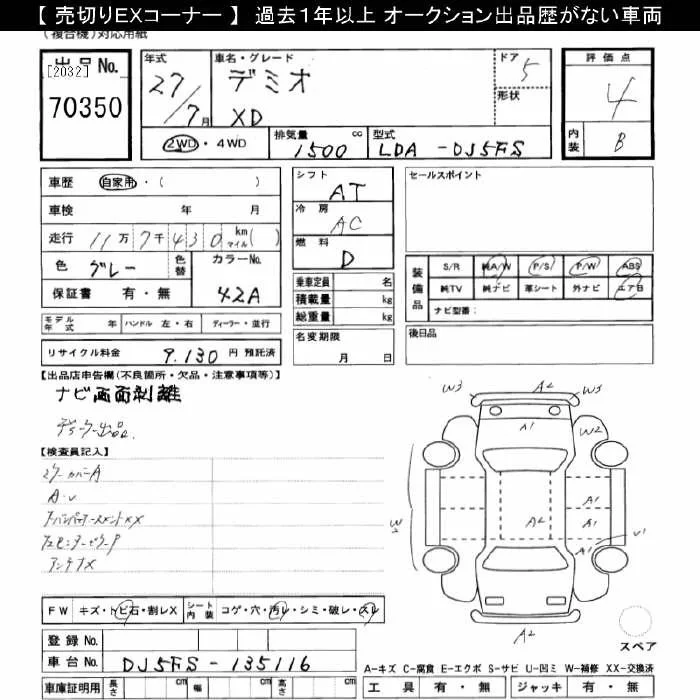 【 売切りEXコーナー 】 過去１年以上 オークション出品歴がない車両
(複合機)対応用紙
出品 No.
[2032]
70350
年式
27/7月
車名・グレード
デミオ
XD
ドア
5
形状
評価点
4
内装
B
2WD・4WD
排気量
1500 cc
型式
LDA -DJ5FS
車歴 自家用・( )
車検 年 月
走行 11万7千430 km マイル( )
色 グレー 色替
カラーNo.
42A
保証書 有・無
モデル年式 年 ハンドル 左・右 ディーラー・並行
リサイクル料金 9.130 円 預託済
シフト
AT
冷房
AC
燃料
D
乗車定員 名
積載量 kg
総重量 kg
名変期限
月 日
セールスポイント
装備品
S/R 純A/W P/S P/W ABS
純TV 純ナビ 革シート 外ナビ エアB
ナビ型番:
後日品
【出品店申告欄(不良箇所・欠品・注意事項等)】
ナビ画面剥離
【検査員記入】
ミラーカバーA
A・U
アンテナX
W3 A2 W3
A1 W2
W2
A1
A2 A1
A1 U1
A2
スペア
FW キズ・トビ石・割レX
シート内装 コゲ・穴・汚レ・シミ・破レ・スレ
登録 No.
車台 No. DJ5FS - 135116
車庫証明用 長さ cm 幅 cm 高さ cm
A-キズ C-腐食 E-エクボ S-サビ U-凹ミ W-補修 XX-交換済
工具 有・無 ジャッキ 有・無